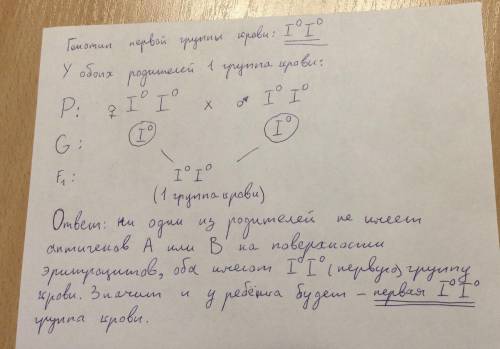 Генотип первой группы крови: I⁰I⁰
У обоих родителей 1 группа крови:
P: ♀ I⁰ I⁰ x ♂ I⁰ I⁰
G: I⁰ I⁰
F₁: I⁰I⁰
(1 группа крови)
Ответ: ни один из родителей не имеет
антигенов А или В на поверхности
эритроцитов, оба имеют I⁰I⁰ (первую) группу
крови. Значит и у ребёнка будет – первая I⁰I⁰
группа крови.